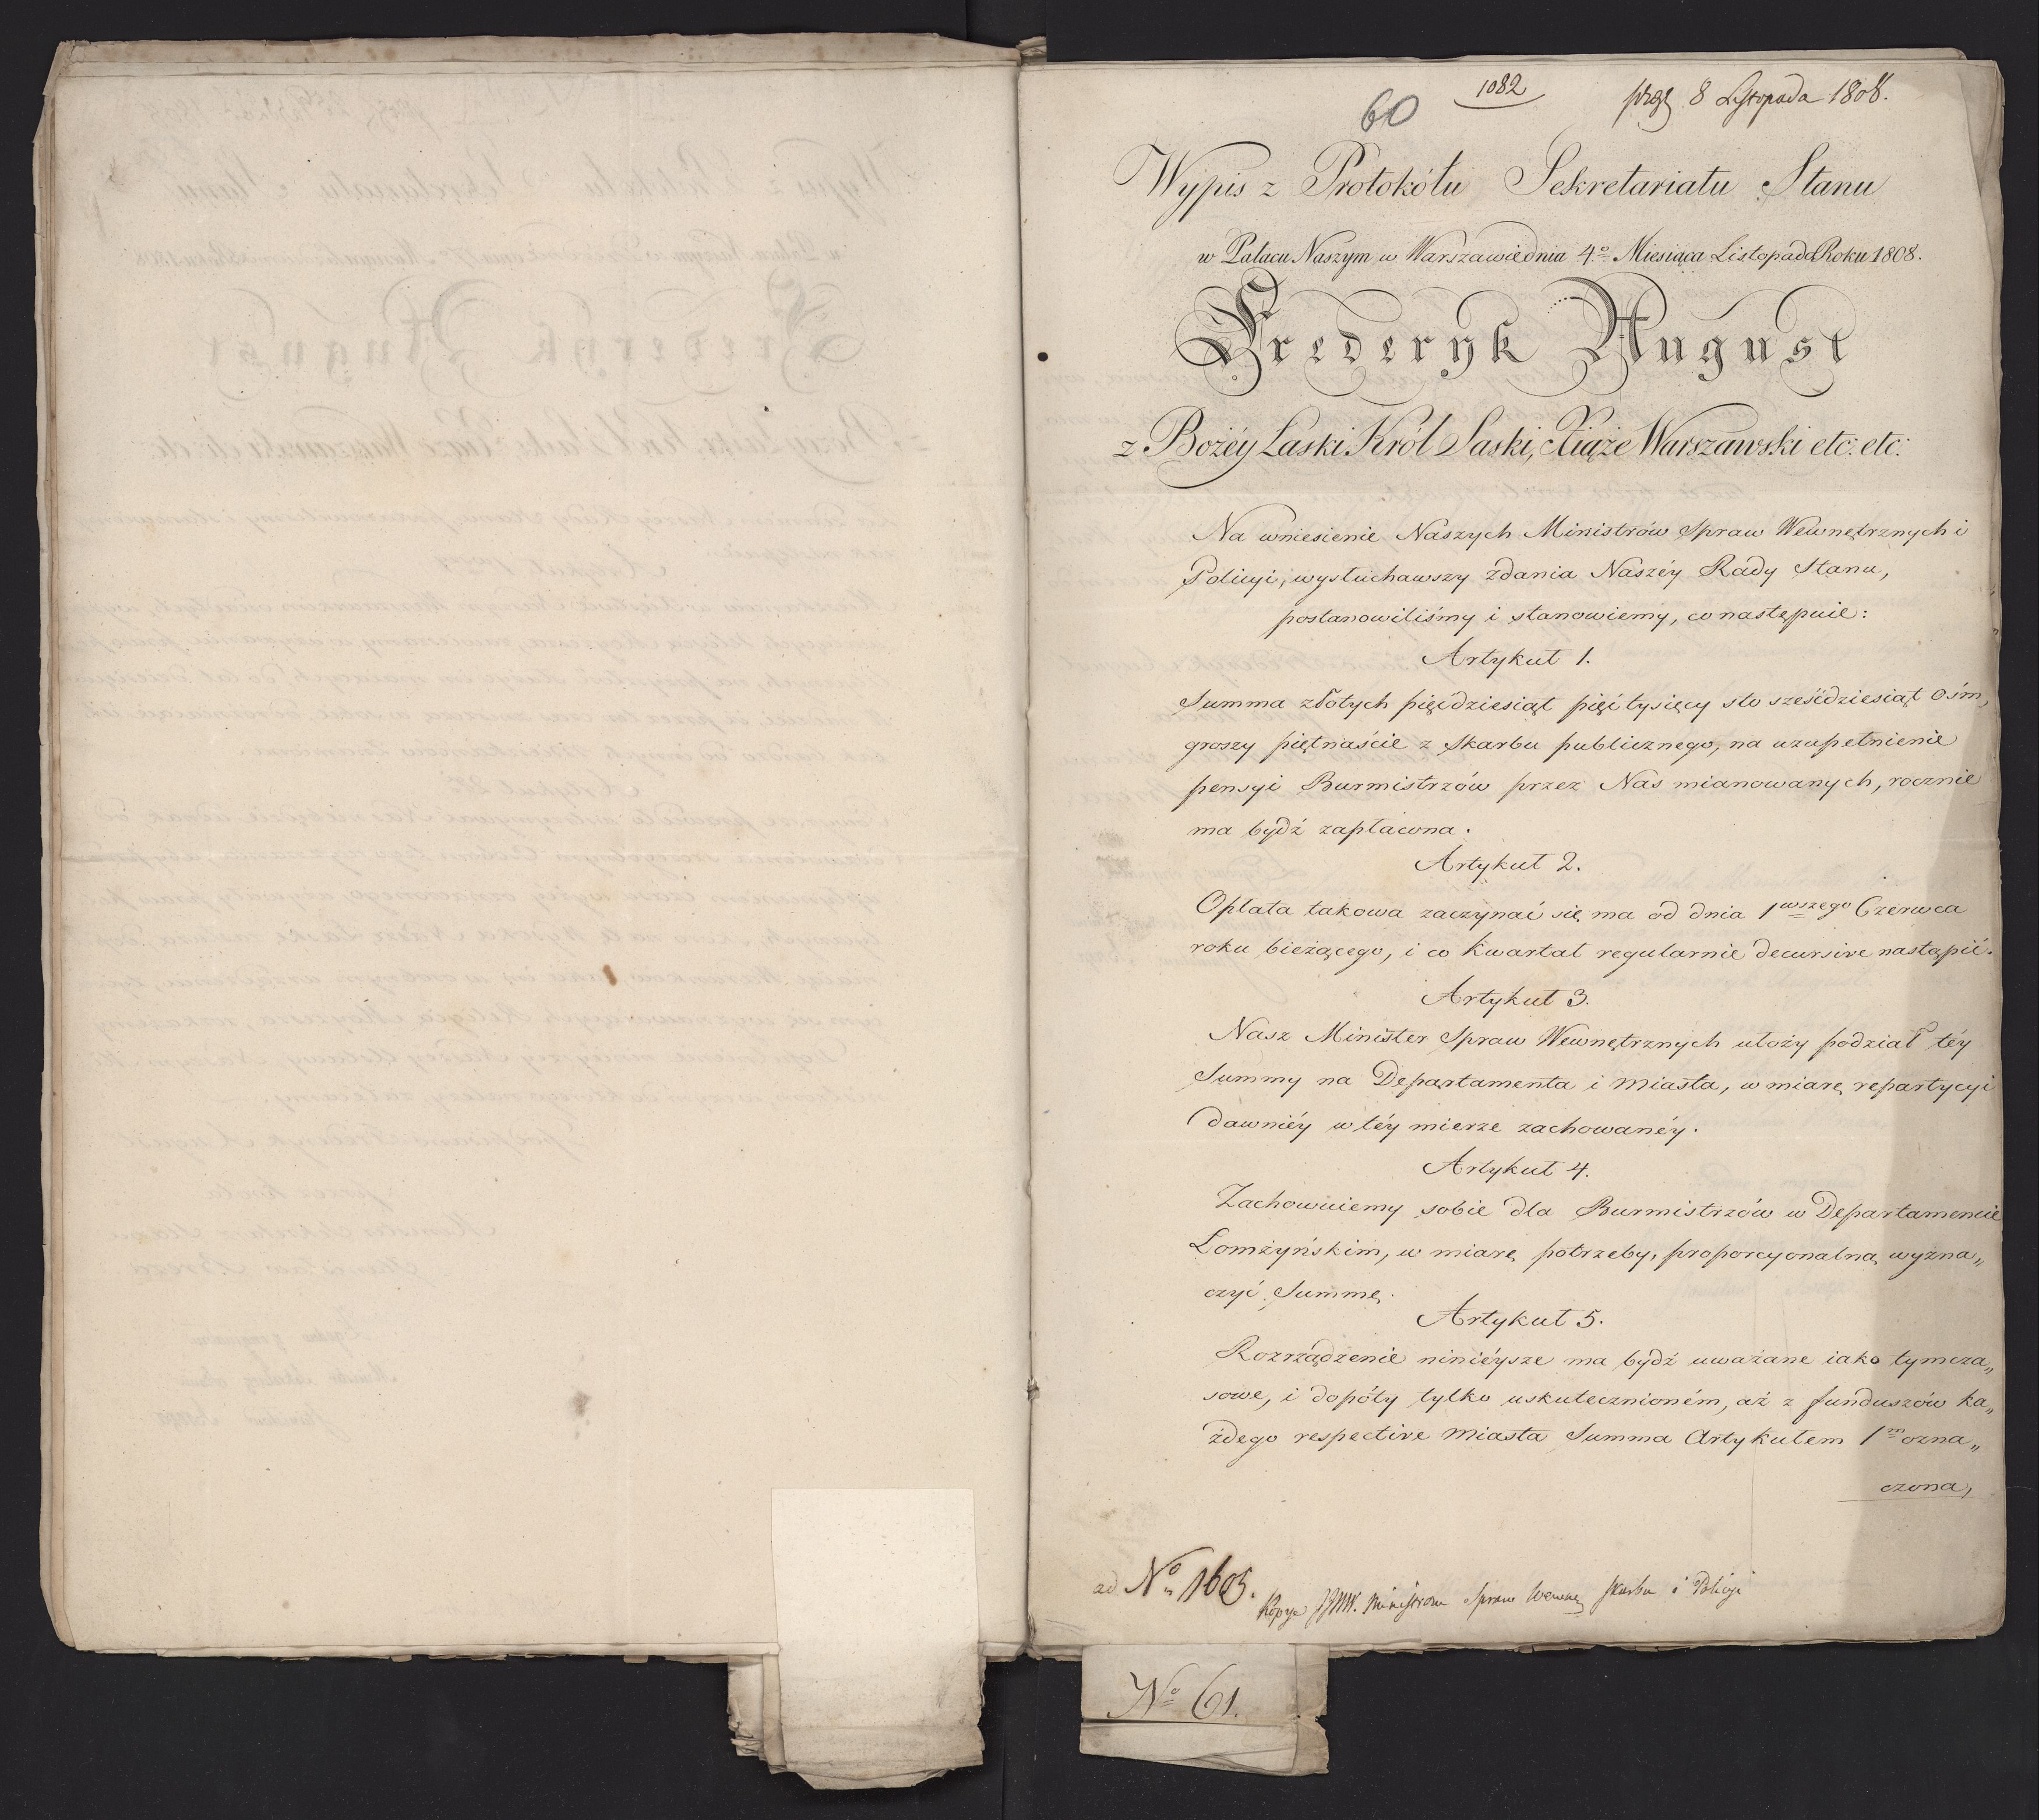 1082
60
8 Listopada 1808.
Wypis z Protokółu Sekretariatu Stanu
w Pałacu Naszym w Warszawie dnia 4º Miesiąca Listopada Roku 1808.
Frederyk August
z Bożéy Łaski Król Saski, Xiąże Warszawski etc: etc:
Na wniesienie Naszych Ministrów Spraw Wewnętrznych i
Policyi, wysłuchawszy zdania Naszéy Rady Stanu,
postanowiliśmy i stanowiemy, co następuie:
Artykuł 1.
Summa złotych pięćdziesiąt pięć tysięcy sto sześćdziesiąt ośm,
groszy piętnaście z Skarbu publicznego, na uzupełnienie
pensyi Burmistrzów przez Nas mianowanych, rocznie
ma bydź zapłacona.
Artykuł 2.
Opłata takowa zaczynać się ma od dnia 1wszego Czerwca
roku bieżącego, i co kwartał regularnie decursive nastąpić.
Artykuł 3.
Nasz Minister Spraw Wewnętrznych ułoży podział téy
Summy na Departamenta i Miasta, w miarę repartycyi
dawniéy w téy mierze zachowanéy.
Artykuł 4.
Zachowuiemy sobie dla Burmistrzów w Departamencie
Łomżyńskim, w miarę potrzeby, proporcyonalną wyzna„
czyć Summę.
Artykuł 5.
Rozrządzenie ninieysze ma bydź uważane iako tymcza„
sowe, i dopóty tylko uskutecznioném, aż z funduszów ka„
żdego respective Miasta Summa Artykułem 1m ozna„
czona,
ad Nº 1603.
Kopye JJWW. Ministrom Spraw Wewnę Skarbu i Policyi
Nº 61.